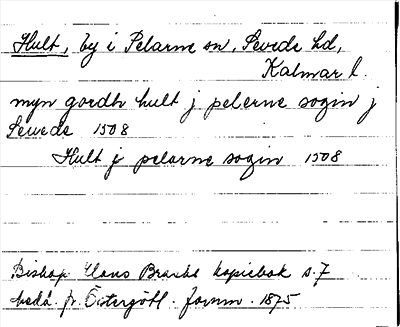 Hult, by i Pelarne sn, Sevede hd,
Kalmar l.
myn goedh hult j pelerne sogin j
Sewede 1508
Hult j pelarne sogin 1508
Biskop Hans Brasks kopiebok s. 7
Medd. fr. Östergötl. fornm. 1875